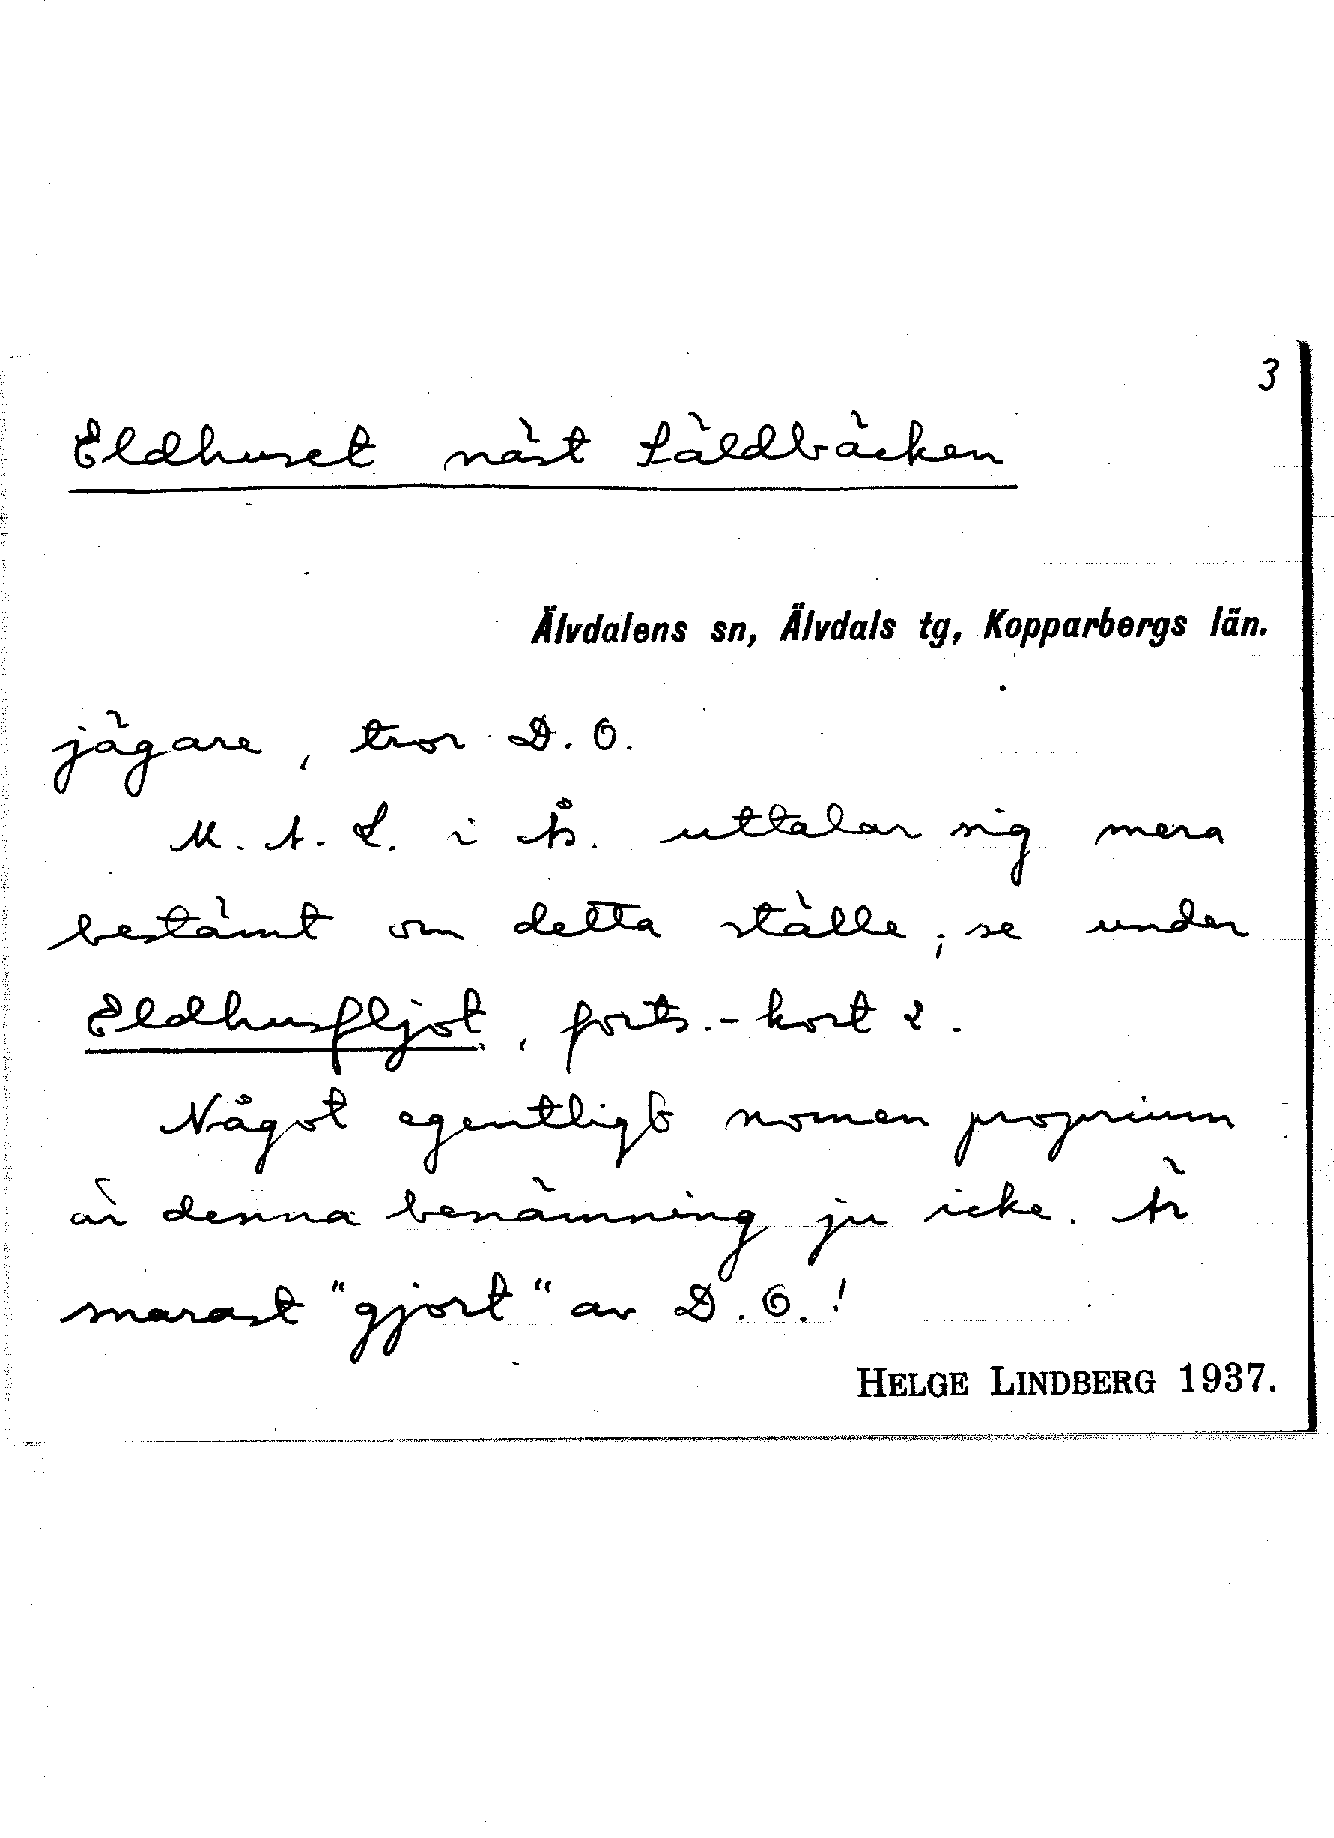 3
Eldhuset näst Säldbäcken
Älvdalens sn, Älvdals tg, Kopparbergs län.
jägare, tror D. O.
M. A. L. i Åb. uttalar sig mera
bestämt om detta ställe; se under
Eldhusfljot, forts.-kort 2.
Något egentligt nomen proprium
är denna benämning ju icke. Är
snarast "gjort" av D. O.!
HELGE LINDBERG 1937.